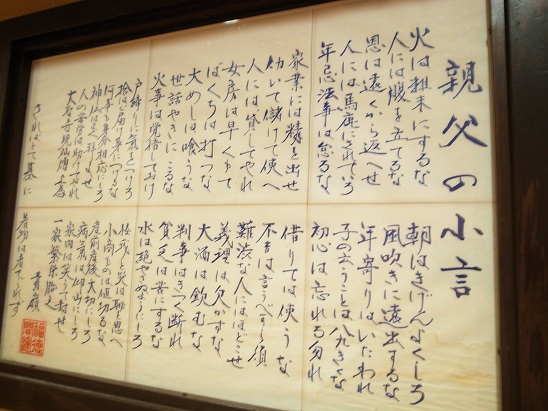 親父の小言
火は粗末にするな
人には腹を立てるな
恩は遠くから返へせ
人には馬鹿にされていろ
年忌法事は怠るな
家業には精を出せ
働いて儲けて使へ
人には貸してやれ
女房は早くもて
ばくちは打つな
大めしは喰うな
世話やきになるな
火事は覚悟しておけ
戸締りに気をつけろ
拾はば届け身につけるな
何事も身分相応にしろ
神仏はよく拝ませ
人の苦労は助けてやれ
大聖寺暁仙僧
さればとて墓に
朝はきげんよくしろ
風吹きに遠出するな
年寄りはいたわれ
子の云うことは八九きくな
初心は忘れる勿れ
借りては使うな
不吉は言うべからず
難渋な人にはほどこせ
義理は欠かすな
大酒は飲むな
判事はきつく断れ
貧乏は苦にするな
水は絶やさぬようにしろ
怪我と災は恥と思へ
小商ものは値切るな
産前産後大切にしろ
病気は仰山にしろ
家内は笑うて暮せ
一家繁栄
着物は着せられず